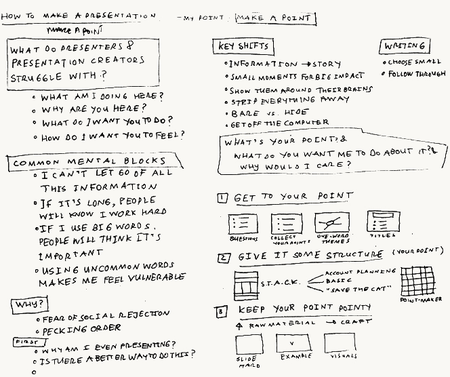 HOW TO MAKE A PRESENTATION
MAKE A POINT
WHAT DO PRESENTERS &
PRESENTATION CREATORS
STRUGGLE WITH?
• WHAT AM I DOING HERE?
• WHY ARE YOU HERE?
• WHAT DO I WANT YOU TO DO?
• HOW DO I WANT YOU TO FEEL?
COMMON MENTAL BLOCKS
• I CAN'T LET GO OF ALL
THIS INFORMATION
• IF IT'S LONG, PEOPLE
WILL KNOW I WORK HARD
• IF I USE BIG WORDS,
PEOPLE WILL THINK IT'S
IMPORTANT
• USING UNCOMMON WORDS
MAKES ME FEEL VULNERABLE
WHY?
• FEAR OF SOCIAL REJECTION
• PECKING ORDER
FIRST
• WHY AM I EVEN PRESENTING?
• IS THERE A BETTER WAY TO DO THIS?
- MY POINT: MAKE A POINT
KEY SHIFTS
• INFORMATION → STORY
• SMALL MOMENTS FOR BIG IMPACT
• SHOW THEM AROUND THEIR BRAINS
• STRIP EVERYTHING AWAY
• BARE VS. HIDE
• GET OFF THE COMPUTER
WRITING
• CHOOSE SMALL
• FOLLOW THROUGH
WHAT'S YOUR POINT &
WHAT DO YOU WANT ME TO DO ABOUT IT? &
WHY WOULD I CARE?
1 GET TO YOUR POINT
QUESTIONS
COLLECT YOUR POINTS
ONE-WORD THEMES
TITLES
2 GIVE IT SOME STRUCTURE (YOUR POINT)
S.T.A.C.K.
ACCOUNT PLANNING
BASIC
"SAVE THE CAT"
POINT-MAKER
3 KEEP YOUR POINT POINTY
RAW MATERIAL → CRAFT
SLIDE
EXAMPLE
VISUALS